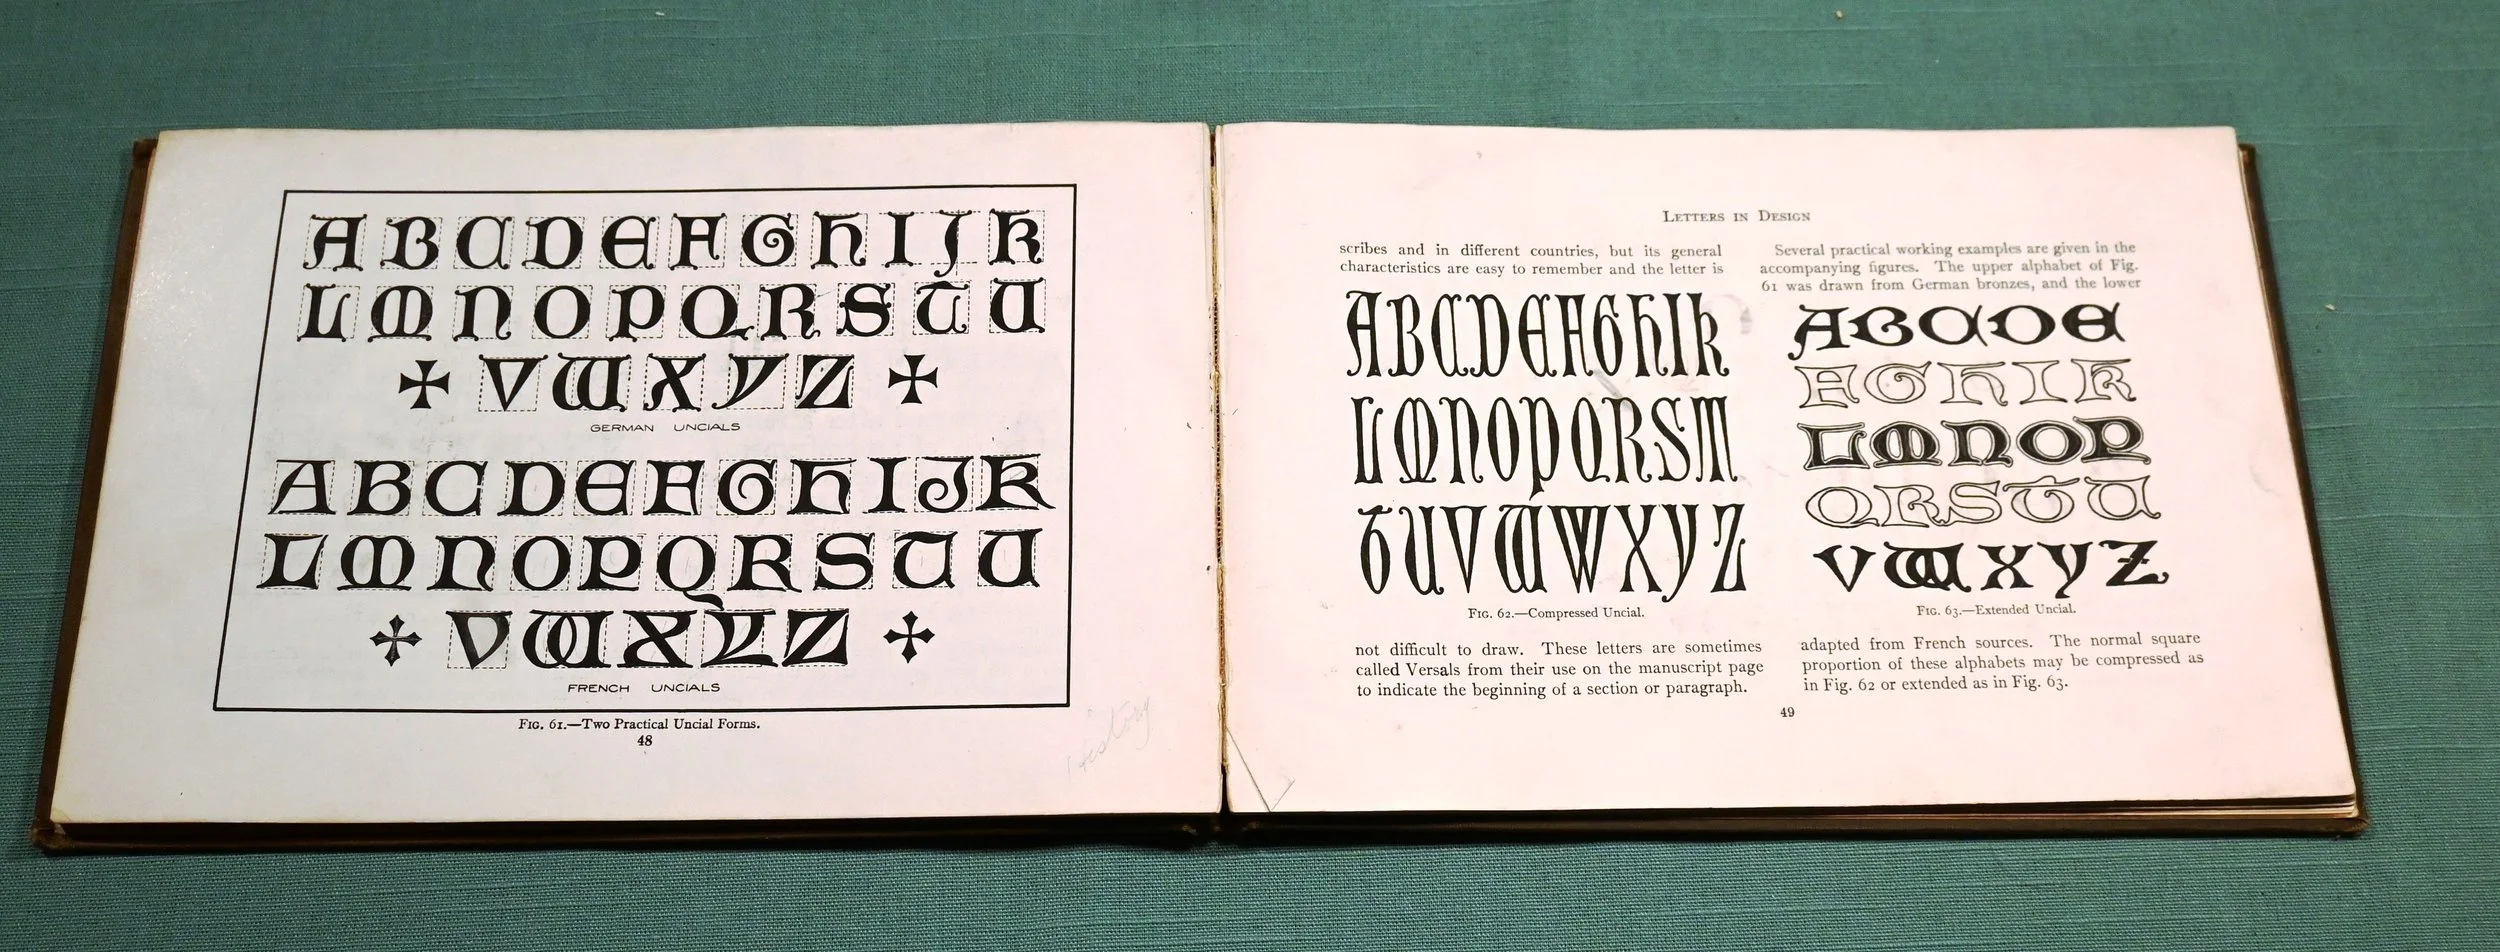 A B C D E F G H I J K
L M N O P Q R S T U
V W X Y Z
GERMAN UNCIALS
A B C D E F G H I J K
L M N O P Q R S T U
V W X Y Z
FRENCH UNCIALS
FIG. 61.—Two Practical Uncial Forms.
48
History
LETTERS IN DESIGN
scribes and in different countries, but its general
characteristics are easy to remember and the letter is
A B C D E F G H I K
L M N O P Q R S M
T U V W W X Y Z
FIG. 62.—Compressed Uncial.
not difficult to draw. These letters are sometimes
called Versals from their use on the manuscript page
to indicate the beginning of a section or paragraph.
Several practical working examples are given in the
accompanying figures. The upper alphabet of Fig.
61 was drawn from German bronzes, and the lower
A B C D E
F G H I K
L M N O P
Q R S T U
V W X Y Z
FIG. 63.—Extended Uncial.
adapted from French sources. The normal square
proportion of these alphabets may be compressed as
in Fig. 62 or extended as in Fig. 63.
49